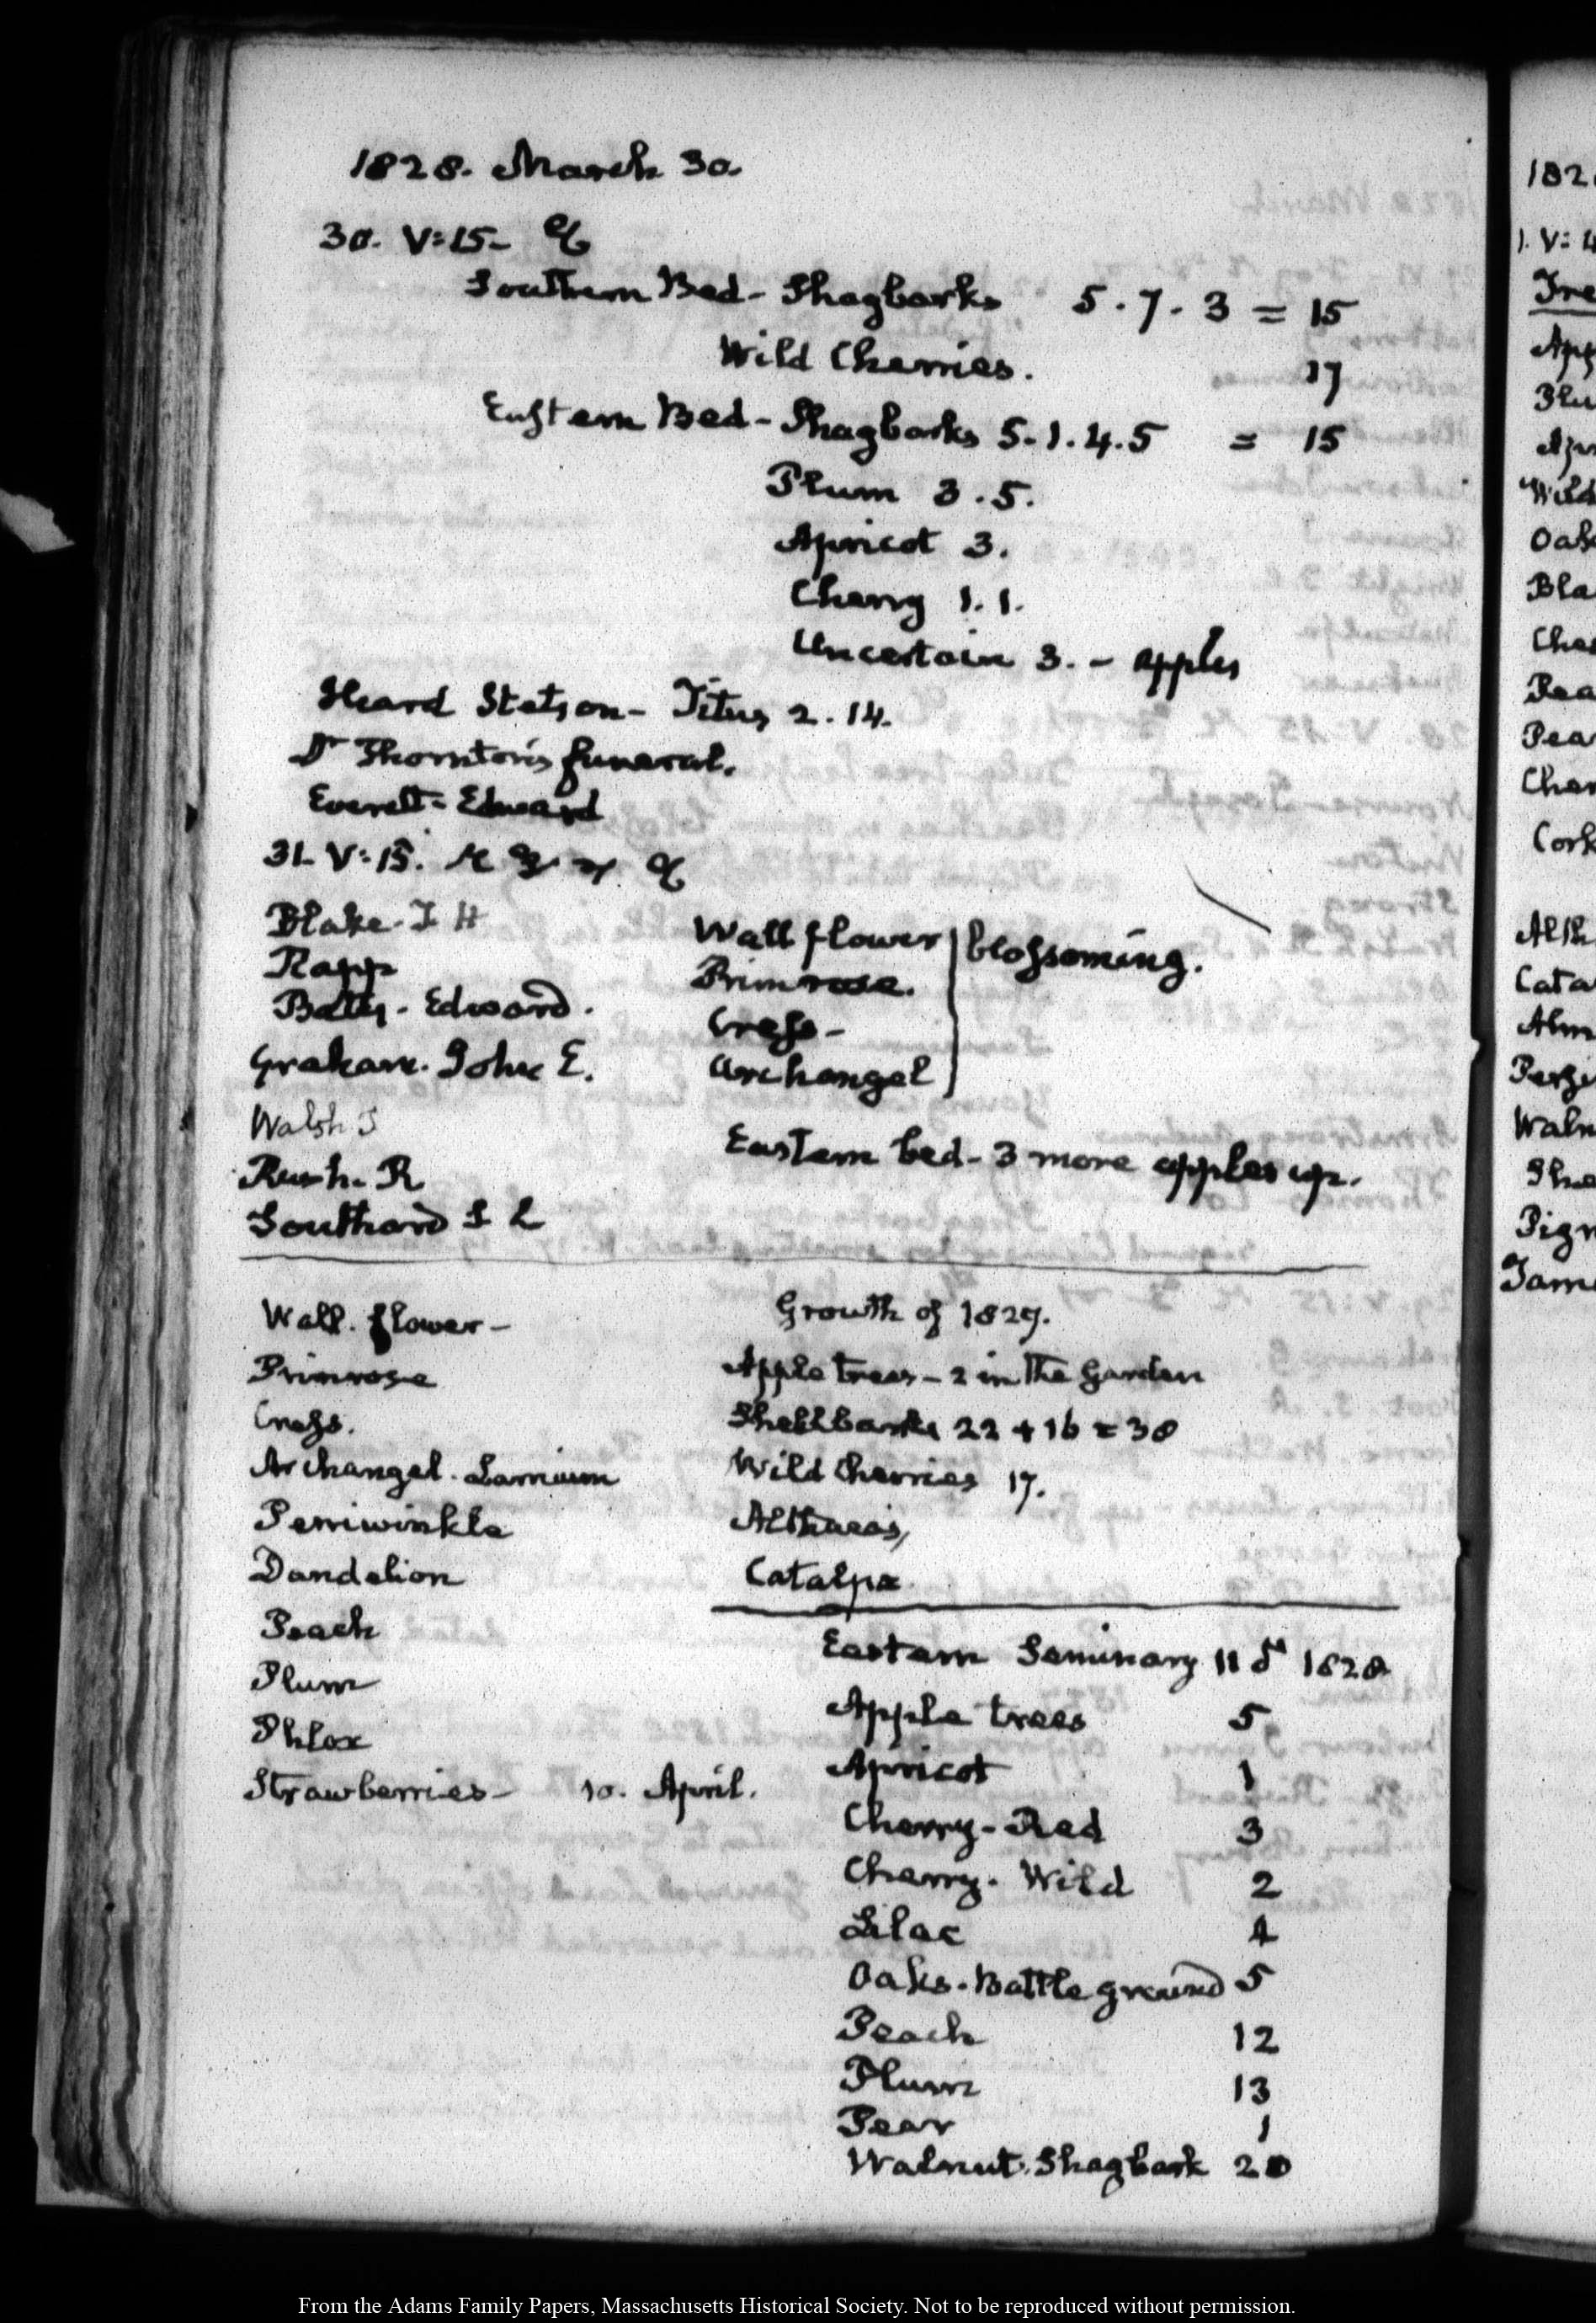 1828. March 30.
30. V:15-
Southern Bed- Shagbarks 5.7.3 = 15
Wild Cherries. 17
Eastern Bed- Shagbarks 5.1.4.5 = 15
Plum 3.5.
Apricot 3.
Cherry 1.1.
Uncertain 3. - apples
Heard Stetson- Titus 2.14.
Dr Thornton's funeral.
Everett- Edward
31. V:15.
Blake. J H
Rapp
Bates. Edward.
Graham. John E.
Walsh J
Rush. R
Southard S L
Wall flower
Primrose.
Cress-
Archangel
blossoming.
Eastern bed- 3 more apples up.
Wall. flower-
Primrose
Cress.
Archangel. Lamium
Periwinkle
Dandelion
Peach
Plum
Phlox
Strawberries- 10. April.
Growth of 1827.
Apple trees- 2 in the Garden
Shellbarks 22 + 16 = 38
Wild Cherries 17.
Althaeas,
Catalpa
Eastern Seminary 1828
Apple trees 5
Apricot 1
Cherry- Red 3
Cherry. Wild 2
Lilac 4
Oaks. Battle ground 5
Peach 12
Plum 13
Pear 1
Walnut. Shagbark 20
182
1. V: 4
Tre
App
Plu
Apr
Wild
Oak
Bla
Che
Pea
Pea
Cher
Cork
Alth
Cata
Alm
Pers
Waln
Sha
Pign
Tam
From the Adams Family Papers, Massachusetts Historical Society. Not to be reproduced without permission.